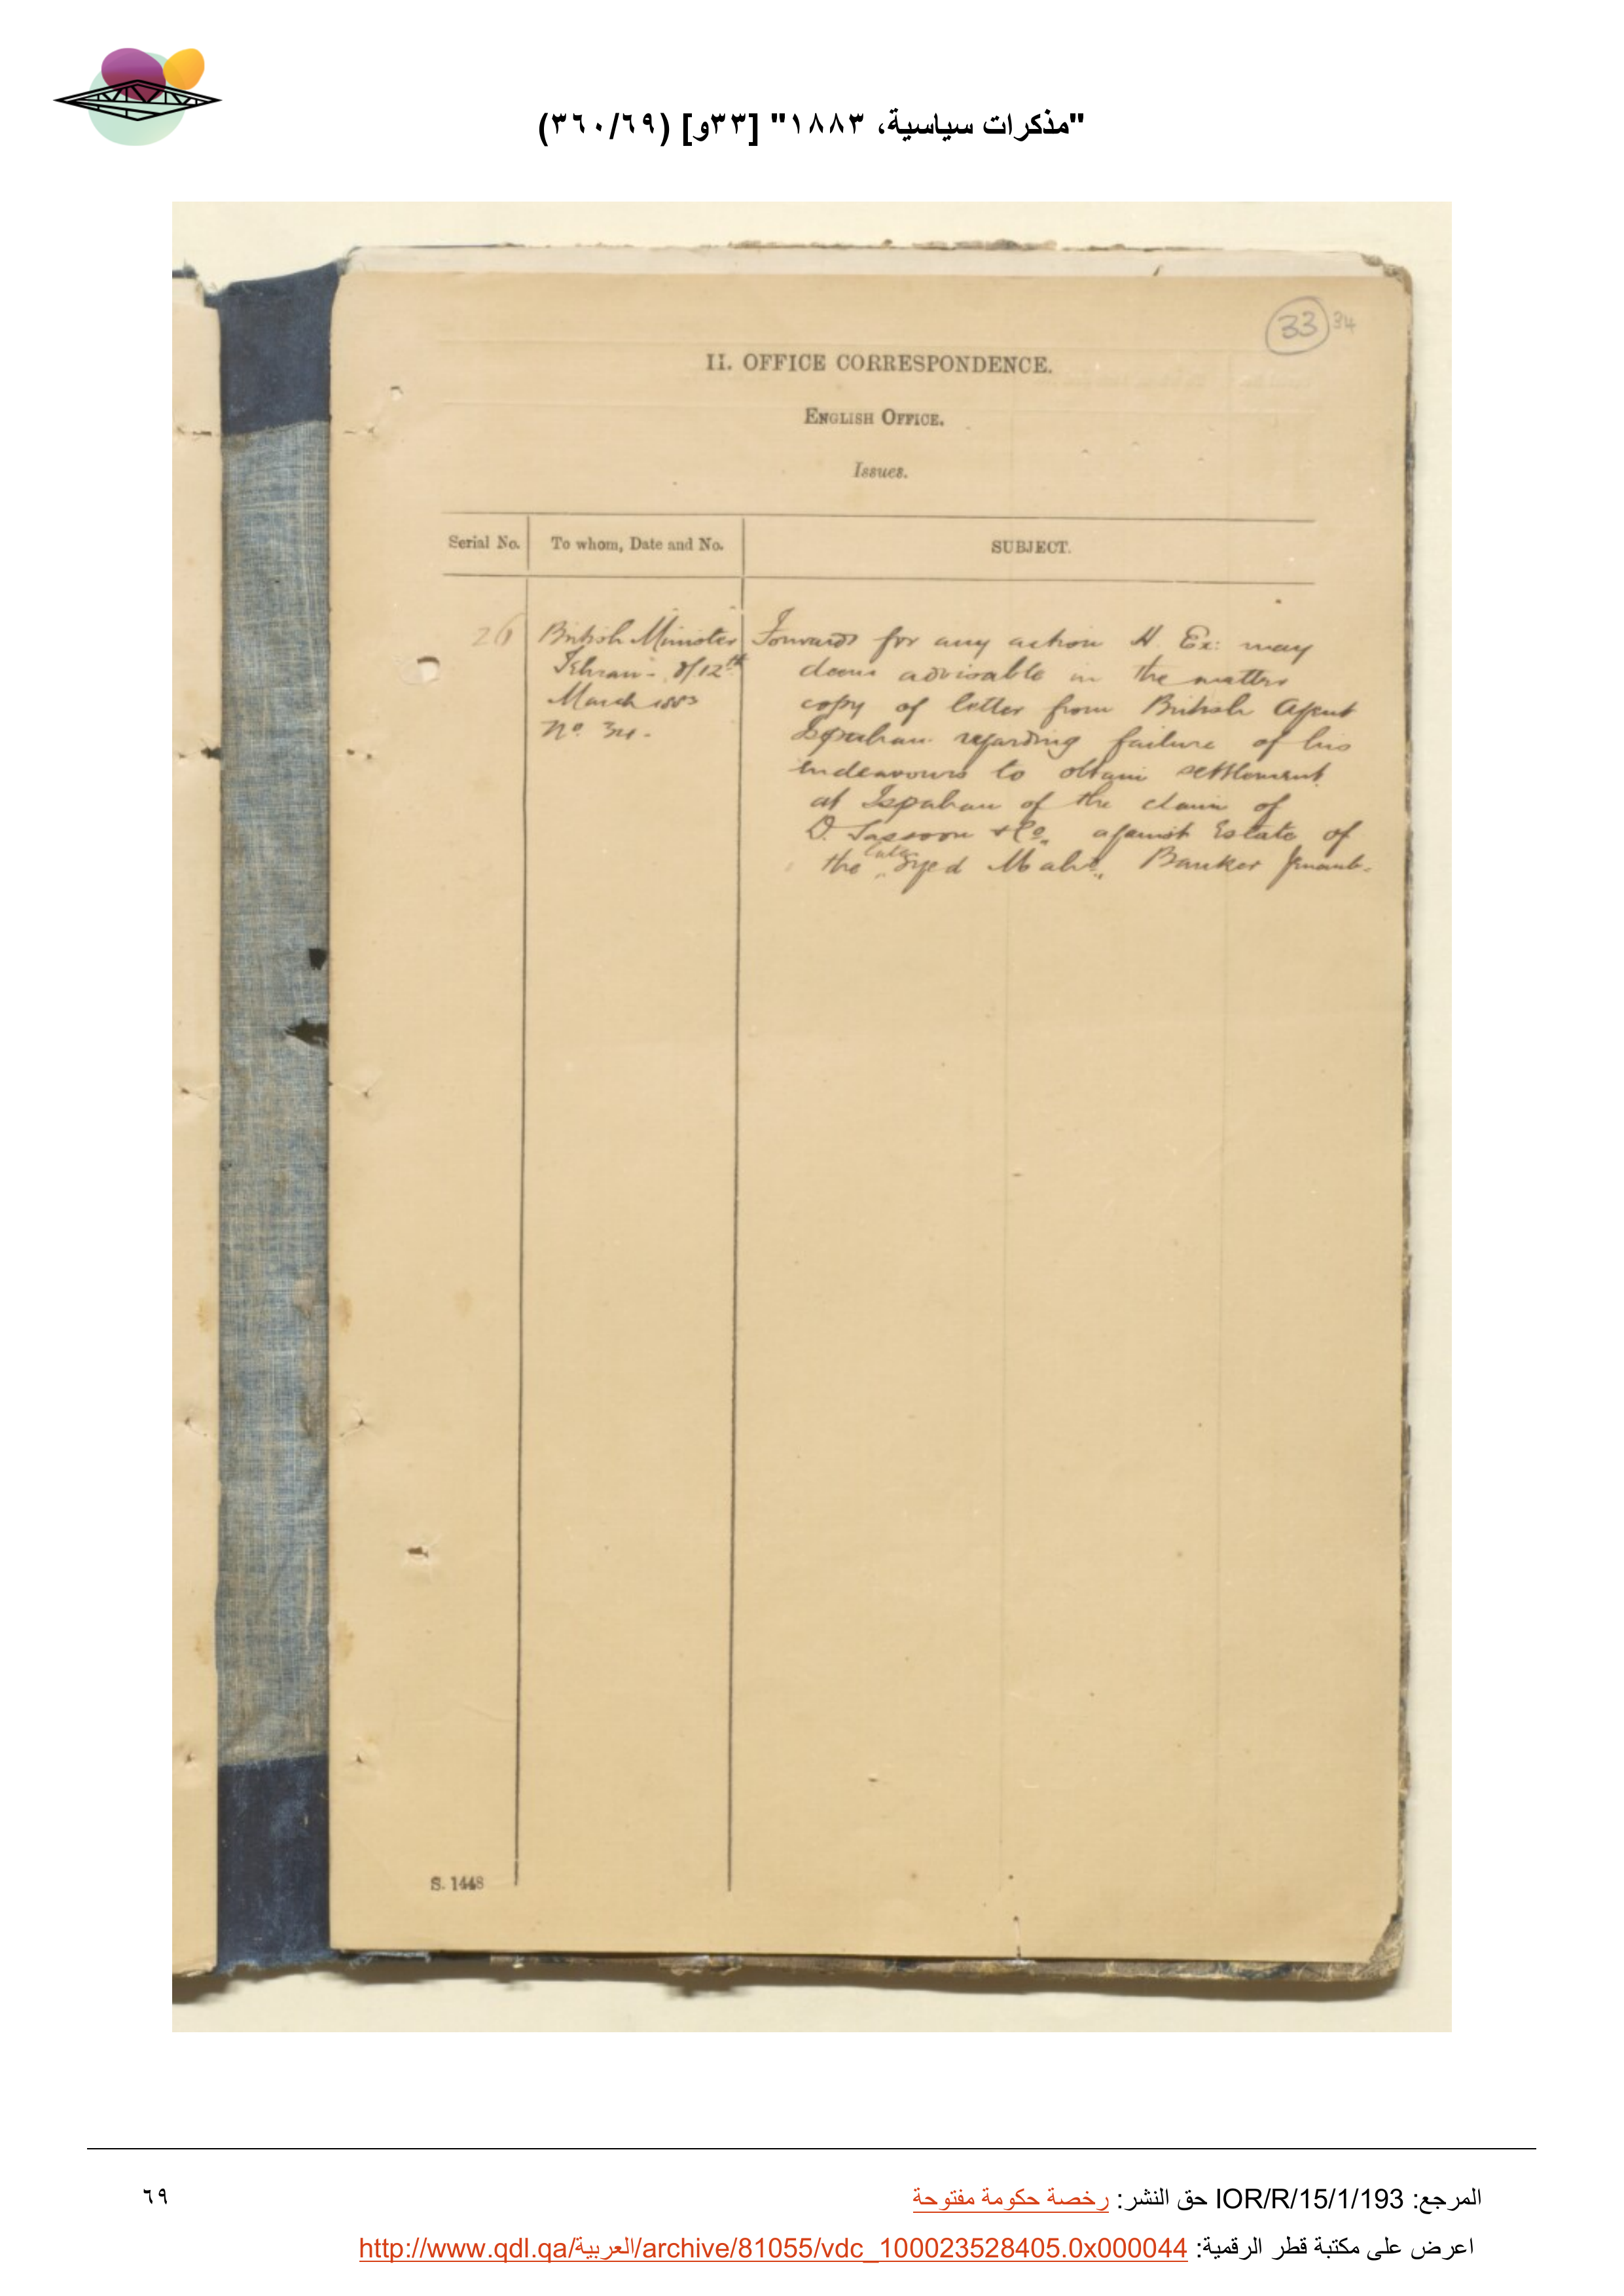 "مذكرات سياسية، ١٨٨٣" [٣٣و] (٣٦٠/٦٩)
33 34
II. OFFICE CORRESPONDENCE.
ENGLISH OFFICE.
Issues.
Serial No. To whom, Date and No. SUBJECT.
26 British Minister Forwards for any action H. Ex: may
Tehran - d/12th deem advisable in the matter
March 1883 copy of letter from British Agent
No. Ispahan regarding failure of his
endeavours to obtain settlement
at Ispahan of the claim of
D. Sassoon & Co. against Estate of
the late Syed Banker
S. 1448
المرجع: IOR/R/15/1/193 حق النشر: رخصة حكومة مفتوحة
٦٩
اعرض على مكتبة قطر الرقمية: http://www.qdl.qa/العربية/archive/81055/vdc_100023528405.0x000044